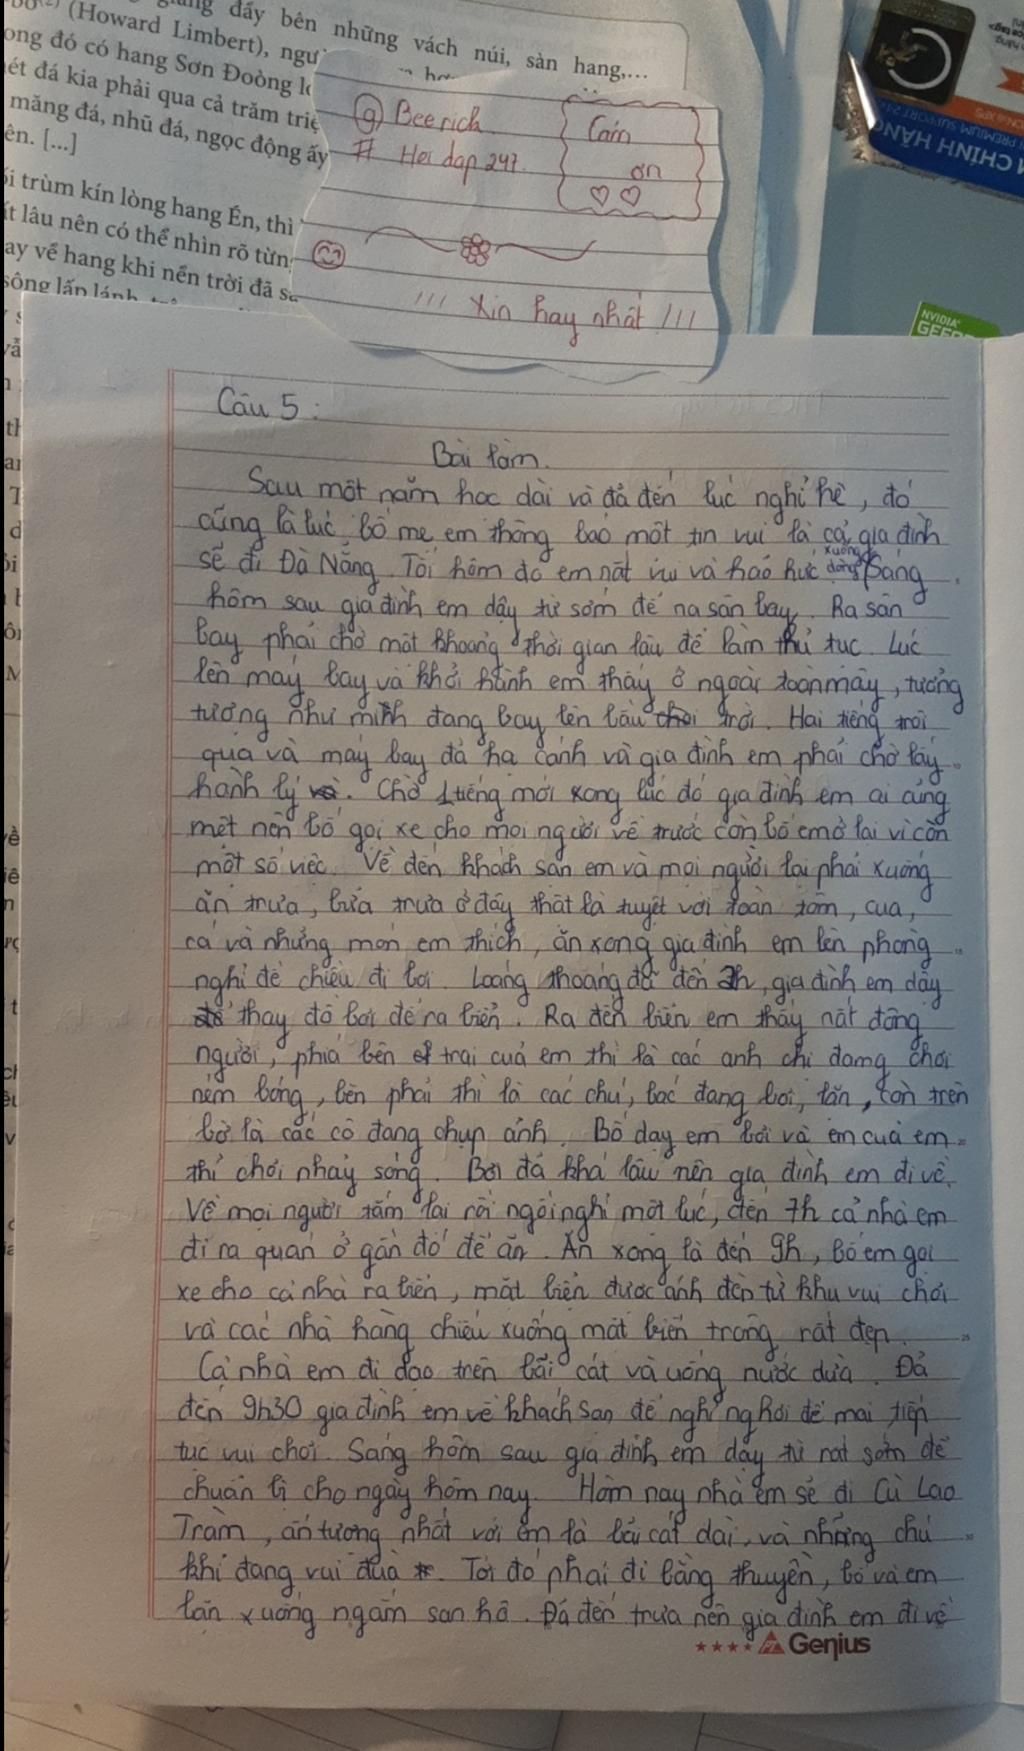 giảng đấy bên những vách núi, sàn hang,...
(Howard Limbert), ngư
ong đó có hang Sơn Đoòng l
ét đá kia phải qua cả trăm triệ
măng đá, nhũ đá, ngọc động ấy
ên. [...]
ối trùm kín lòng hang Én, thì
ất lâu nên có thể nhìn rõ từn
ay về hang khi nền trời đã s
sông lấp lánh
@ Bee rich
# Hoi dap 247.
Cám
ơn
!!! Xin hay nhất !!!
CHÍNH HÃNG
PREMIUM SUPPORT 24
NVIDIA
GEFO
Câu 5 :
Bài làm.
Sau một năm học dài và đã đến lúc nghỉ hè, đó
cũng là lúc bố mẹ em thông báo một tin vui là cả gia đình
sẽ đi Đà Nẵng. Tối hôm đó em rất vui và háo hức xuống dòng Sáng
hôm sau gia đình em dậy từ sớm để na sân bay. Ra sân
bay phải chờ một khoảng thời gian lâu để làm thủ tục. Lúc
lên máy bay và khởi hành em thấy ở ngoài toàn mây, tưởng
tượng như mình đang bay lên bầu trời. Hai tiếng trôi
qua và máy bay đã hạ cánh và gia đình em phải chờ lấy
hành lý. Chờ 1 tiếng mới xong lúc đó gia đình em ai cũng
mệt nên bố gọi xe cho mọi người về trước còn bố em ở lại vì còn
một số việc. Về đến khách sạn em và mọi người lại phải xuống
ăn trưa, bữa trưa ở đây thật là tuyệt vời toàn tôm, cua,
cá và những món em thích, ăn xong gia đình em lên phòng
nghỉ để chiều đi bơi. Loáng thoáng đã đến 2h, gia đình em dậy
thay đồ bơi để ra biển. Ra đến biển em thấy nất đông
người, phía bên trái của em thì là các anh chị đang chơi
ném bóng, bên phải thì là các chú, bác đang bơi, lặn, còn trên
bờ là các cô đang chụp ảnh. Bố dạy em bơi và em của em
thì chơi nhảy sóng. Bơi đã khá lâu nên gia đình em đi về.
Về mọi người tắm lại rồi ngồi nghỉ một lúc, đến 7h cả nhà em
đi ra quán ở gần đó để ăn. Ăn xong là đến 9h, Bố em gọi
xe cho cả nhà ra biển, mặt biển được ánh đèn từ khu vui chơi
và các nhà hàng chiếu xuống mặt biển trông rất đẹp.
Cả nhà em đi dạo trên bãi cát và uống nước dừa. Đã
đến 9h30 gia đình em về khách sạn để nghỉ ngơi để mai tiếp
tục vui chơi. Sáng hôm sau gia đình em dậy từ rất sớm để
chuẩn bị cho ngày hôm nay. Hôm nay nhà em sẽ đi Cù Lao
Tràm, ấn tượng nhất với em là bãi cát dài, và những chú
khỉ đang vui đùa. Tới đó phải đi bằng thuyền, bố và em
lặn xuống ngắm san hô. Đã đến trưa nên gia đình em đi về
Genius